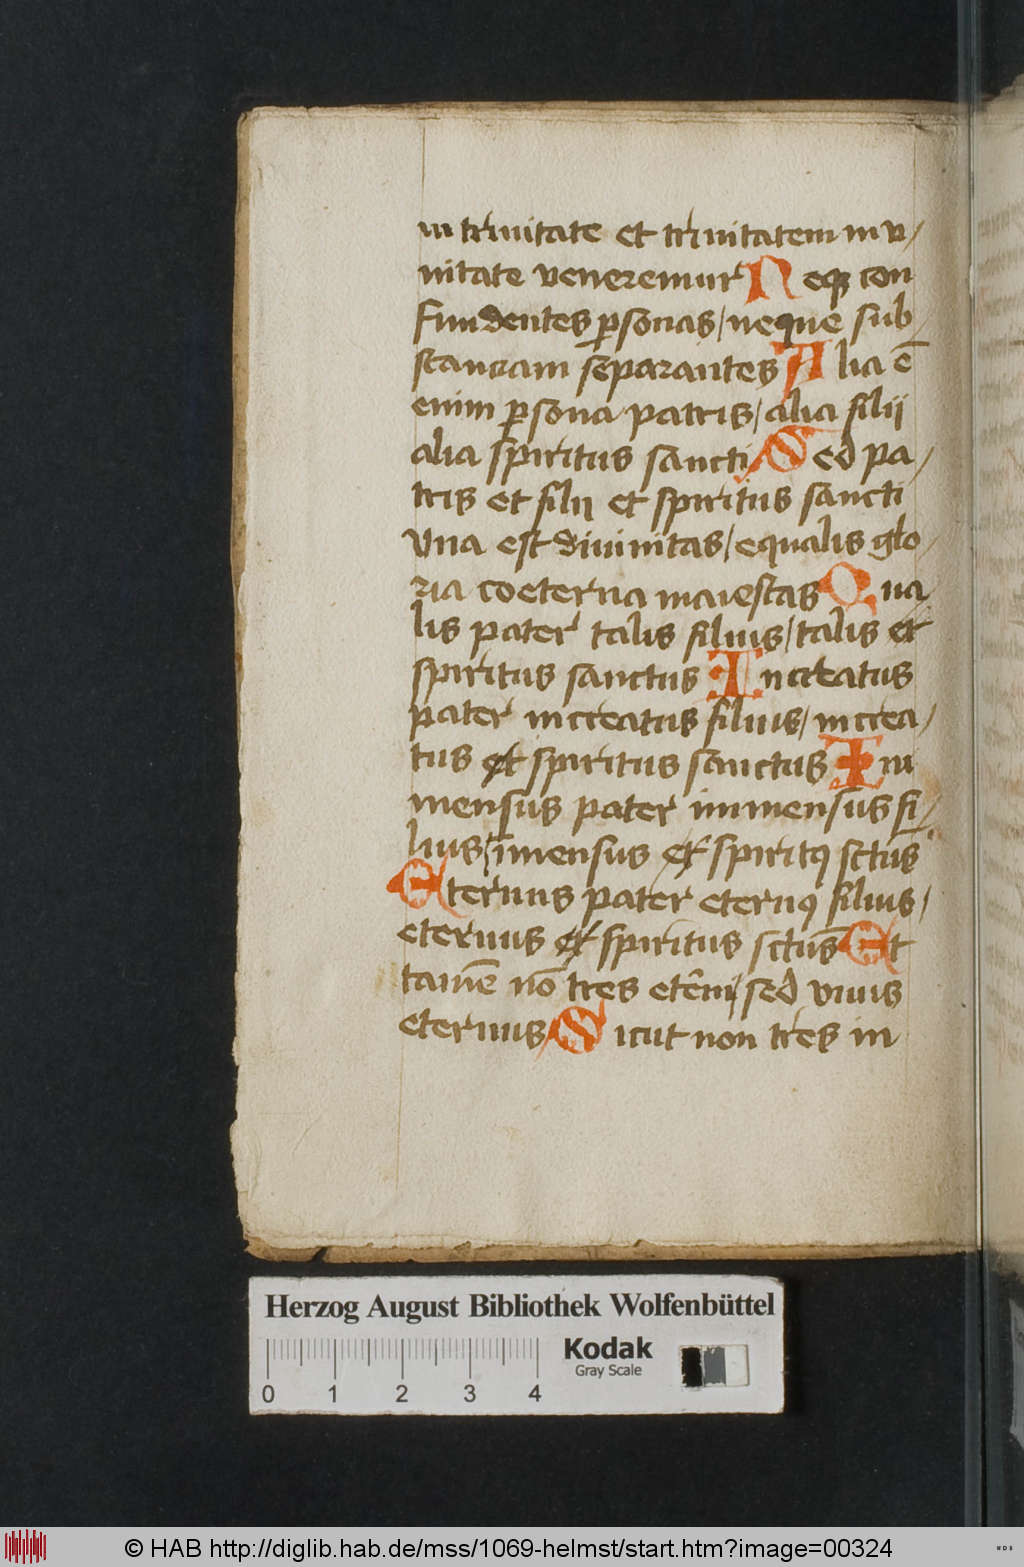 in trinitate et trinitatem in v/
nitate veneremur Neqꝫ con
fundentes ꝑsonas/ neque sub
stanciam separantes Alia ē
enim ꝑsona patris/ alia filij
alia spiritus sancti Sed pa/
tris et filij et spiritus sancti
Vna est diuinitas/ equalis glo/
ria coeterna maiestas Qua/
lis pater talis filius/ talis et
spiritus sanctus Increatus
pater increatus filius/ increa/
tus et spiritus sanctus Im
mensus pater immensus fi/
lius/ īmensus et spiritꝰ sctūs
Eternus pater eternꝰ filius/
eternus et spiritus sctūs Et
tamē nō tres etērni/ sed vnus
eternus Sicut non tres in
Herzog August Bibliothek Wolfenbüttel
Kodak
Gray Scale
0 1 2 3 4
© HAB http://diglib.hab.de/mss/1069-helmst/start.htm?image=00324